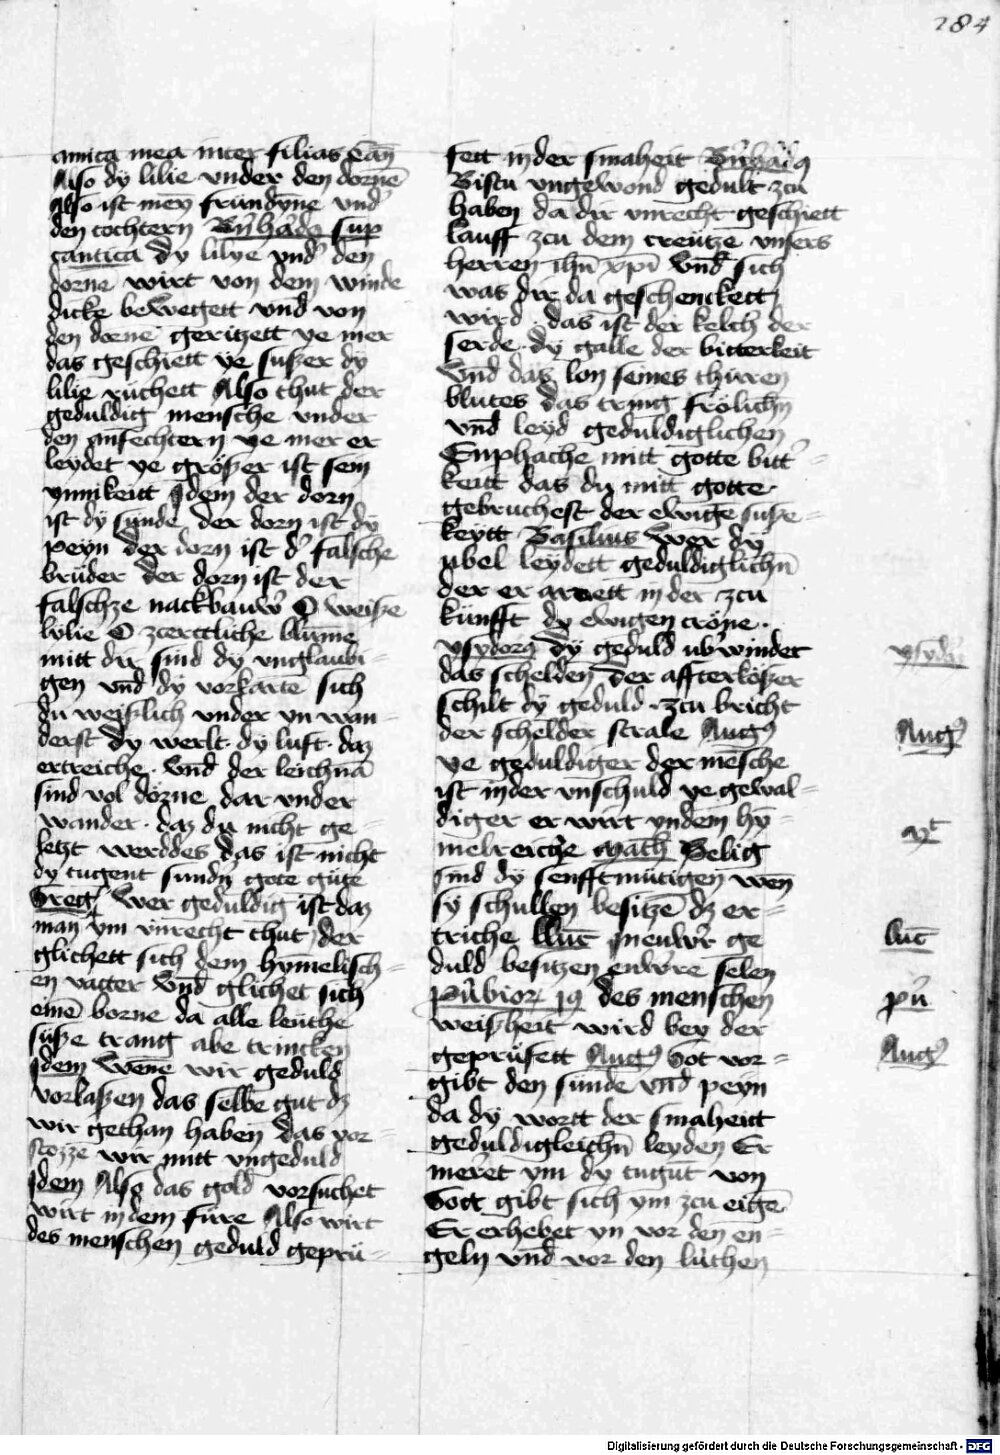 284
amica mea inter filias Cāt
Also dy lilie vnder den dornē
Also ist meȳ frundyne vnd'
den tochtern Bn̄hādq sup
cantica dy lilye vnd' den
dorne wirt von dem winde
dicke bewegett vnd von
den dornē geritzett ye mer
das geschiett ye sußer dy
lilie ruchett Also thut der
geduldig mensche vnder
den anfechtern ye mer er
leydet ye größer ist sein
ynnikeitt Idem der dorn
ist dy sunde der dorn ist dy
peyn der dorn ist d' falsche
brüder der dorn ist der
falschze nackbauw' O weisze
lylie O zcerttliche blume
mitt dir sind dy vnglaubi-
gen vnd dy vorkarte sich
du weißlich vnder yn wan-
derst dy werlt · dy luft · daz
ertreiche · vnd der leichnā
sind vol dörne dar vnder
wander · daz du nicht ge-
letzt werddes das ist nicht
dy tugent sundn̄ gote güte
Greg' Wer geduldig ist daz
man ym vnrecht thut der
glichett sich dem hymelisch-
en vatter Vnd glichet sich
einē borne da alle leüthe
süße trang abe trincken
Idem Wenē wir geduld
vorlaßen das selbe gut dz
wir gethan haben das vor-
stozze wir mitt vngeduld
Idem Also das gold vorsuchet
wirt in dem füre Also wirt
des menschen geduld geprü-
fett in der smaheit Bn̄hādq
Bistu vngewond gedult zcu
haben da dir vnrecht geschiett
lauff zcu dem creütze vnsers
herren ihū xpī Vnd sich
was dir da geschenckett
wird das ist der kelch der
serde · dy galle der bitterkeit
Vnd das lon seines thiren
blutes das tring frölichn̄
vnd leyd geduldiglichen
Enphache mitt gotte bitt'-
keitt das du mitt gotte
gebruchest der ewigē suße-
keytt Basilius Wer dy
ubel leydett geduldiglichn̄
der er arbeitt in der zcu
künfft dy ewigen cröne ·
ysydorq dy geduld ub'windet
das schelden der affterkößer
schilt dy geduld · zcu bricht
der schelder strale Augq
ye geduldiger der mēsche
ist in der vnschuld ye gewal-
diger er wirt yn dem hy-
melreiche Math Selig
sind dy senfftmütigen wēn
sy schullen besitze dz er-
triche Luc̄ In euwr ge
duld besitzen euwre selen
pūbior 19 des menschen
weißheit wird bey der
geprüfett Augq Got vor-
gibt den sünde vnd peyn
da dy wortt der smaheitt
geduldigleichn̄ leyden Er
meret ym dy tugut von
Gott gibt sich ym zcu eigē
Er erhebet yn vor den en-
geln vnd vor den lüthen
ysydor
Augq
mt
luc̄
pū
Augq
Digitalisierung gefördert durch die Deutsche Forschungsgemeinschaft - DFG